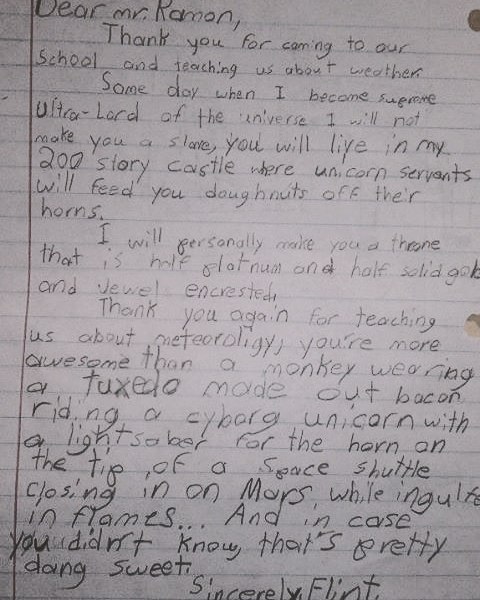 Dear mr. Ramon,
Thank you for coming to our
School and teaching us about weather.
Some day when I become supreme
Ultra-Lord of the universe I will not
make you a slave, you will live in my
200 story castle where unicorn servants
will feed you doughnuts off their
horns.
I will personally make you a throne
that is half platnum and half solid gold
and Jewel encrested.
Thank you again for teaching
us about meteoroligy, you're more
awesome than a monkey wearing
a tuxedo made out bacon
riding a cyborg unicorn with
a lightsaber for the horn on
the tip of a space shuttle
closing in on Mars while ingulfed
in flames... And in case
you didn't know, that's pretty
dang sweet.
Sincerely, Flint.